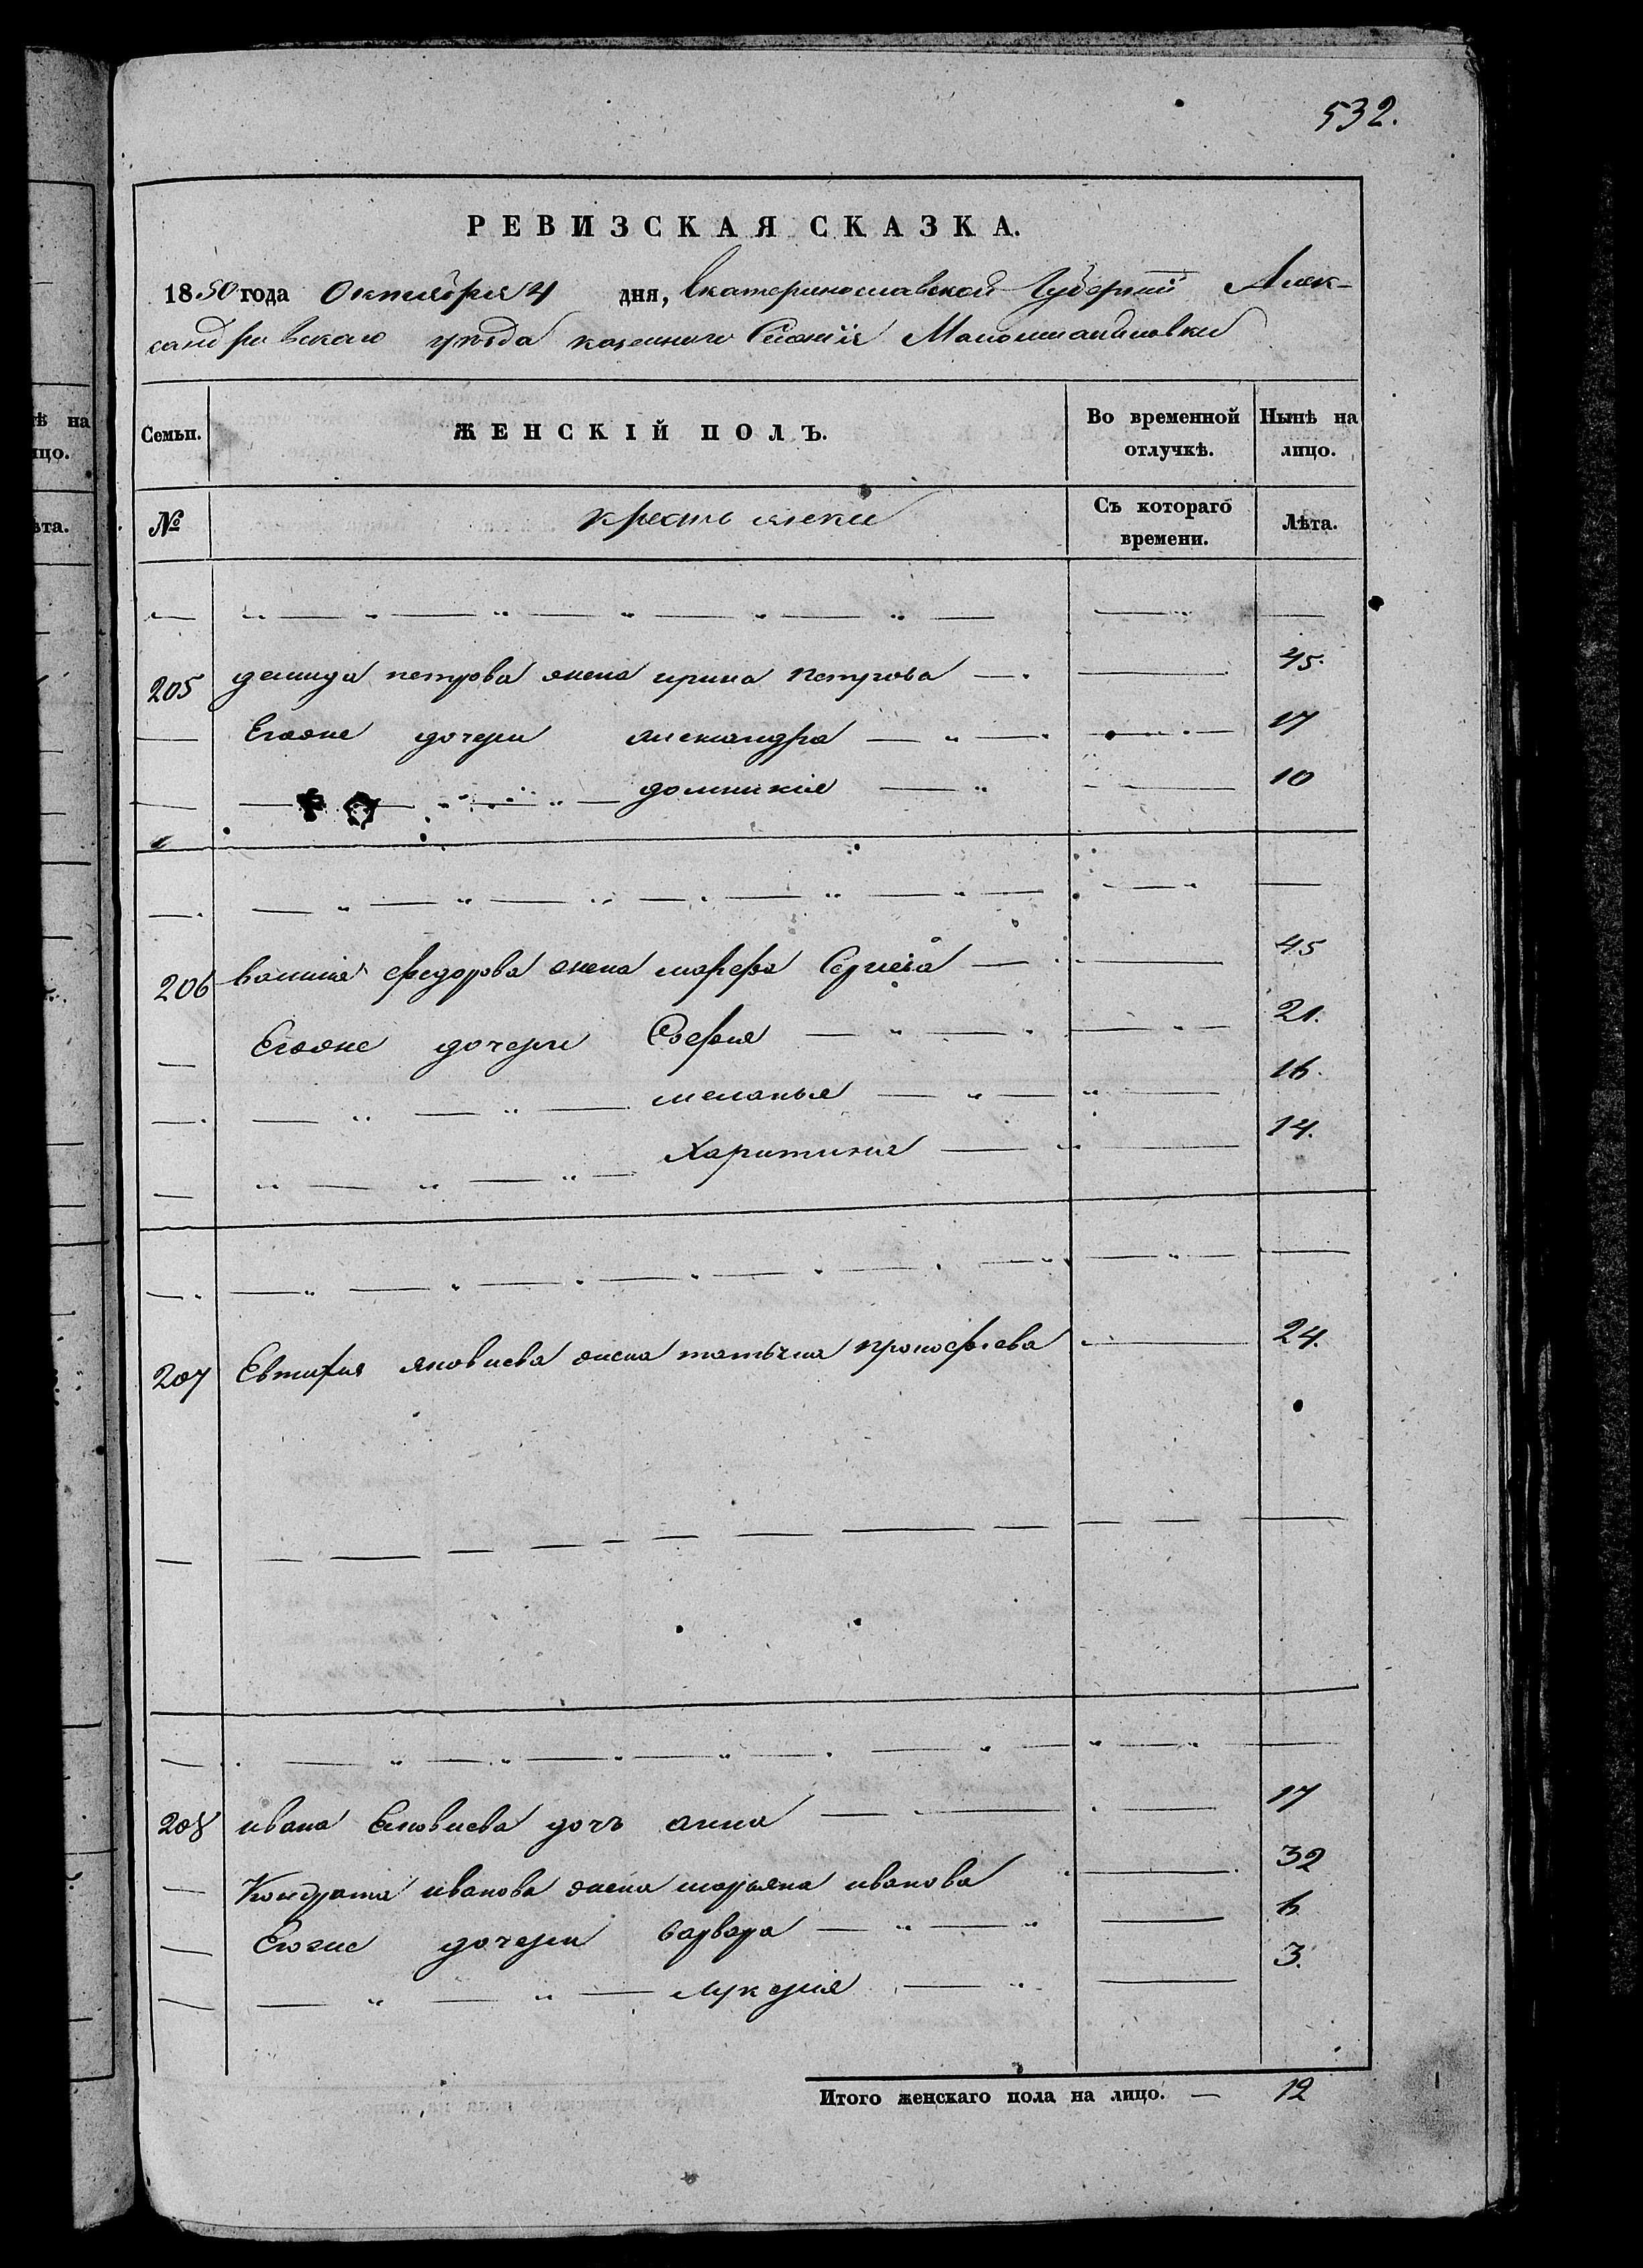 532.
РЕВИЗСКАЯ СКАЗКА.
1850 года Октября 4 дня, Екатеринославской Губернии Алек-
сандровскаго уезда казеннаго Селения
Семьи. ЖЕНСКІЙ ПОЛЪ. Во временной отлучкѣ. Нынѣ на лицо.
№ крестьянки Съ котораго времени. Лѣта.
205 демида петрова жена ирина Петрова 45.
Егоже дочери александра 17
домникия 10
206 василия федорова жена марфа Сергиева 45
Егоже дочери София 21.
меланья 16.
Харитина 14.
207 Евтифия яковлева жена татьяна прокофиева 24.
208 ивана яковлева дочь анна 17
Кондрата иванова жена марьяна иванова 32
Егоже дочери варвара 6
лукерия 3.
Итого женскаго пола на лицо. — 12
ѣ на
ицо.
ѣта.